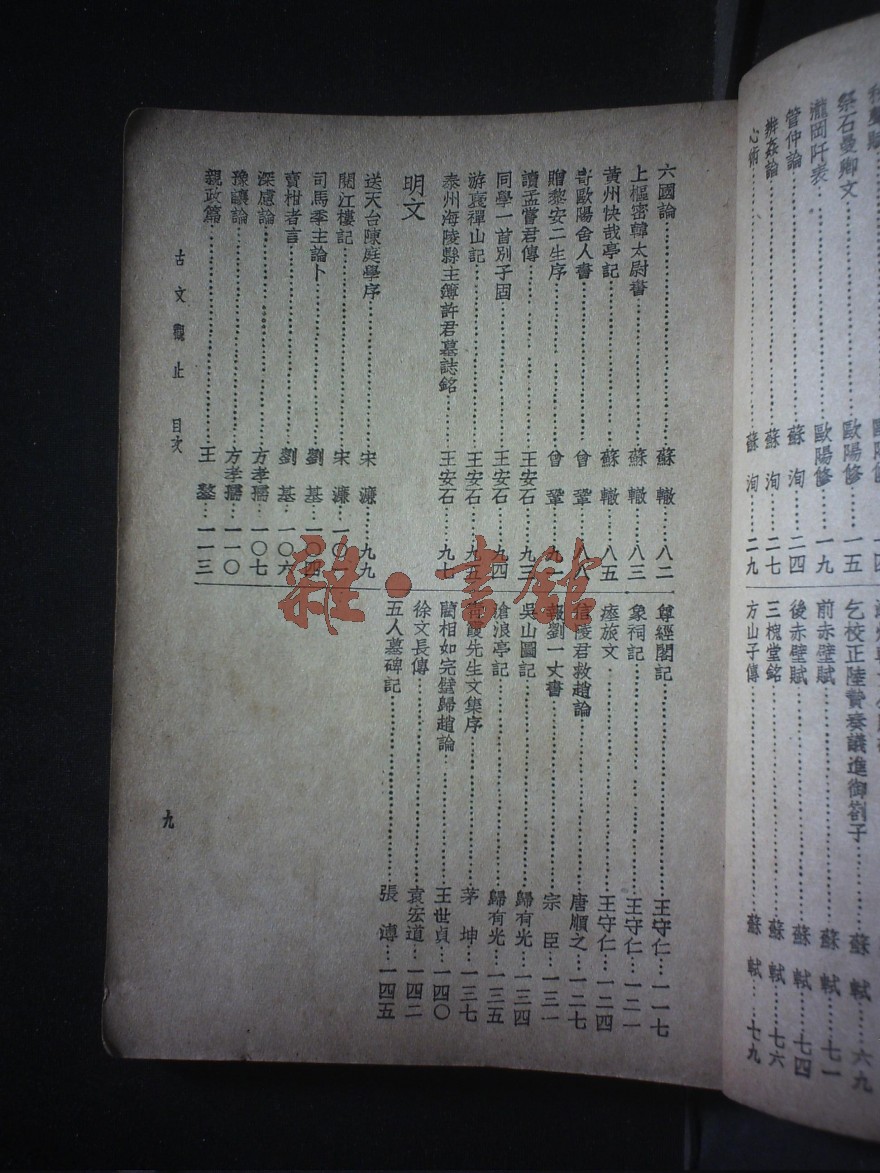 祭石曼卿文……歐陽修…一五
瀧岡阡表……歐陽修…一九
管仲論……蘇洵…二四
辨姦論……蘇洵…二七
心術……蘇洵…二九
乞校正陸贄奏議進御劄子……蘇軾…六九
前赤壁賦……蘇軾…七一
後赤壁賦……蘇軾…七四
三槐堂銘……蘇軾…七六
方山子傳……蘇軾…七九
六國論……蘇轍…八二
上樞密韓太尉書……蘇轍…八三
黃州快哉亭記……蘇轍…八五
寄歐陽舍人書……曾鞏…八八
贈黎安二生序……曾鞏…九一
讀孟嘗君傳……王安石…九三
同學一首別子固……王安石…九四
游褒禪山記……王安石…九五
泰州海陵縣主簿許君墓誌銘……王安石…九七
明文
送天台陳庭學序……宋濂…九九
閱江樓記……宋濂…一〇一
司馬季主論卜……劉基…一〇四
賣柑者言……劉基…一〇六
深慮論……方孝孺…一〇七
豫讓論……方孝孺…一一〇
親政篇……王鏊…一一三
尊經閣記……王守仁…一一七
象祠記……王守仁…一二一
瘞旅文……王守仁…一二四
信陵君救趙論……唐順之…一二七
報劉一丈書……宗臣…一三一
吳山圖記……歸有光…一三四
滄浪亭記……歸有光…一三五
青霞先生文集序……茅坤…一三七
藺相如完璧歸趙論……王世貞…一四〇
徐文長傳……袁宏道…一四二
五人墓碑記……張溥…一四五
古文觀止 目次
九
雜·書館